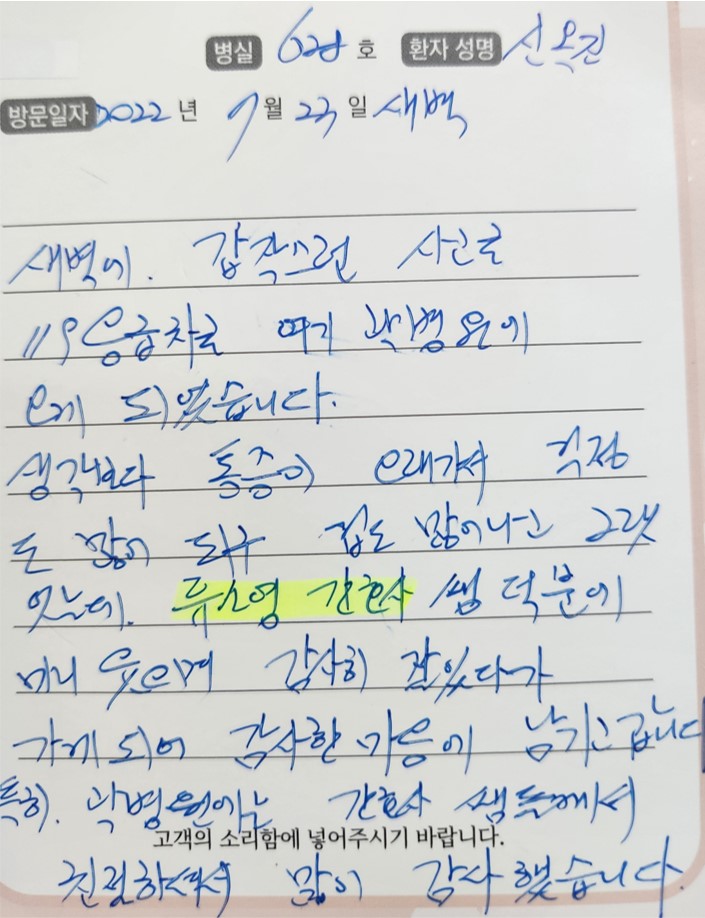 병실 호 환자 성명 신옥진
방문일자 2022 년 7 월 23 일 새벽
새벽에. 갑작스런 사고로
119 응급차로 여기 곽병원에
오게 되었습니다.
생각보다 통증이 오래가서 걱정
도 많이 되구 겁도 많이나고 그랫
엇는데. 류소영 간호사 쌤 덕분에
감사히 잘있다가
가게되어 감사한 마음에 남기고갑니다
특히. 곽병원에는 간호사 쌤들께서
고객의 소리함에 넣어주시기 바랍니다.
친절하셔서 많이 감사했습니다.